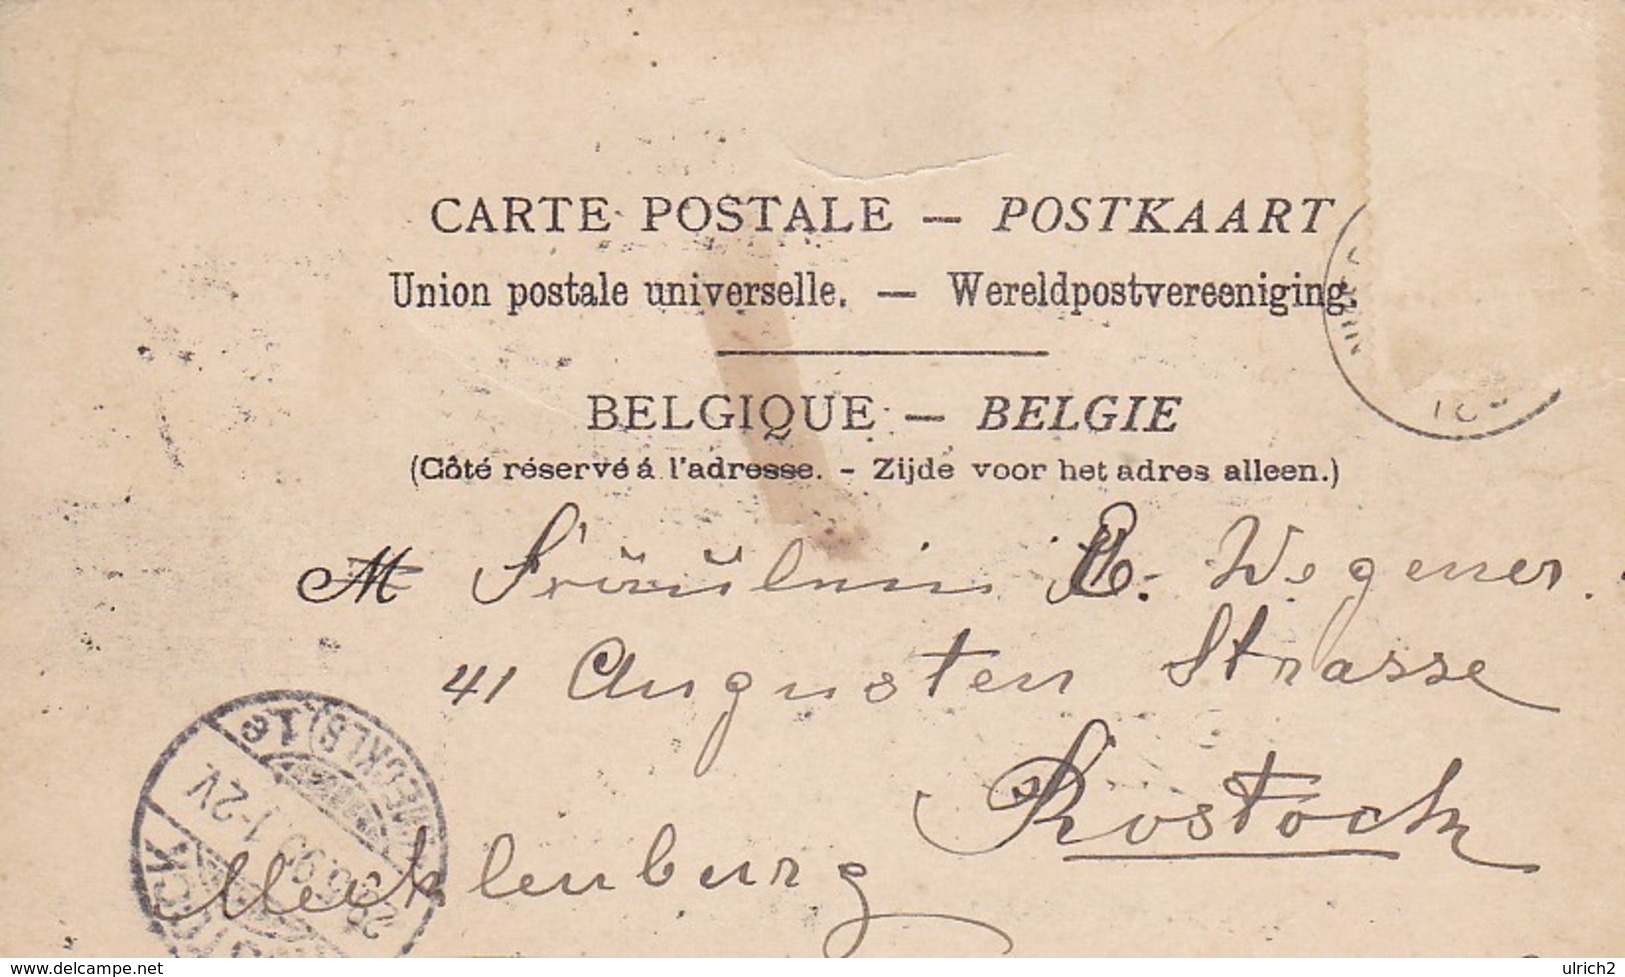 CARTE POSTALE — POSTKAART
Union postale universelle. — Wereldpostvereeniging.
BELGIQUE — BELGIE
(Côté réservé á l'adresse. - Zijde voor het adres alleen.)
M Fräulein Wegener.
41 Augusten Strasse
Rostock
Mecklenburg
1-2V
delcampe.net
ulrich2